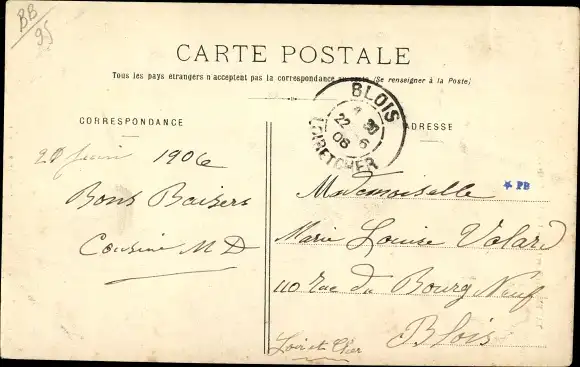 BB
95
CARTE POSTALE
Tous les pays étrangers n'acceptent pas la correspondance au recto (Se renseigner à la Poste)
CORRESPONDANCE
ADRESSE
BLOIS
22 6
06
LOIR-ET-CHER
juin 1906
Bons Baisers
Cousine M D
Mademoiselle
PB
Marie Louise Volard
110 rue du Bourg Neuf
Blois
Loir et Cher